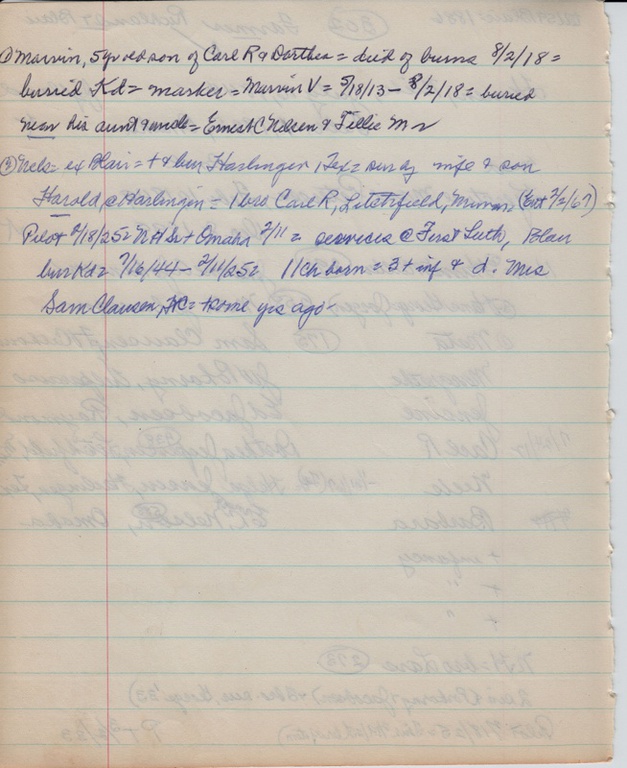 ① Marvin, 5 yr old son of Carl R & Dorthea = died of burns 8/2/18 =
buried Kd = marker = Marvin V = 5/18/13 - 8/2/18 = buried
near his aunt & uncle = Ernest C Nelsen & Tillie M
② Nels = ex Blair = + & bur Harlingen, Tex = surv by wife & son
Harold @ Harlingen = 1 bro Carl R, Litchfield, Minn (Ent 2/2/67)
Pilot 2/18/25 = & Omaha 2/11 = services @ First Luth, Blair
bur Kd = 7/16/44 - 2/11/25 = 11 Ch born = 3 + inf & d. Mrs
Sam Clausen, = + some yrs ago -